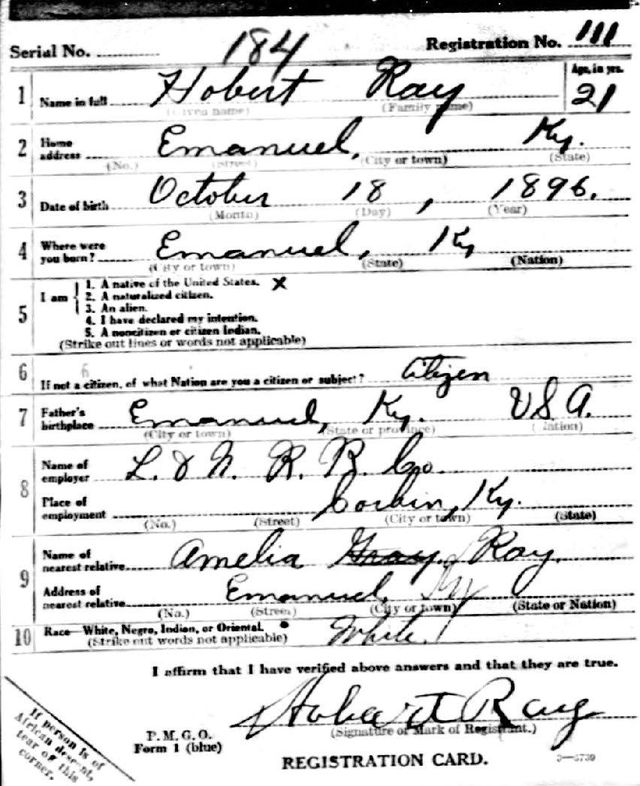 Serial No. 184 Registration No. 111
1 Name in full Hobert Ray Age, in yrs. 21
(Given name) (Family name)
2 Home address Emanuel, Ky.
(No.) (Street) (City or town) (State)
3 Date of birth October 18, 1896.
(Month) (Day) (Year)
4 Where were you born? Emanuel, Ky
(City or town) (State) (Nation)
5 I am
1. A native of the United States. X
2. A naturalized citizen.
3. An alien.
4. I have declared my intention.
5. A noncitizen or citizen Indian.
(Strike out lines or words not applicable)
6 If not a citizen, of what Nation are you a citizen or subject? Citizen
7 Father's birthplace Emanuel, Ky. U S A.
(City or town) (State or province) (Nation)
8 Name of employer L. & N. R. R. Co.
Place of employment Corbin, Ky.
(No.) (Street) (City or town) (State)
9 Name of nearest relative Amelia Gray Ray.
Address of nearest relative Emanuel, Ky
(No.) (Street) (City or town) (State or Nation)
10 Race—White, Negro, Indian, or Oriental. White.
(Strike out words not applicable)
I affirm that I have verified above answers and that they are true.
Hobart Ray
(Signature or Mark of Registrant.)
P. M. G. O.
Form 1 (blue)
REGISTRATION CARD.
3—5739
If person is of
African descent,
tear off this
corner.